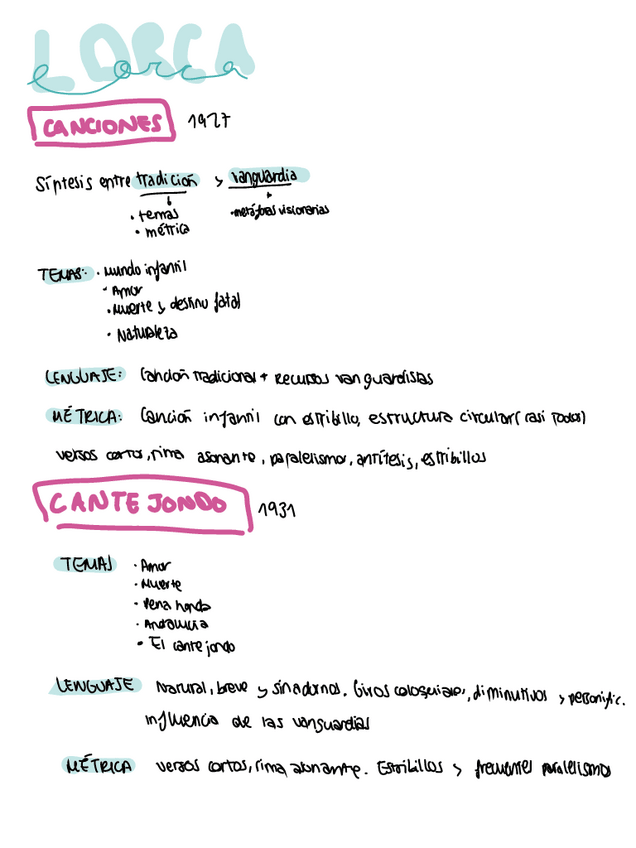 LORCA
Lorca
CANCIONES 1927
Síntesis entre tradición y vanguardia
· temas
· métrica
· metáforas visionarias
TEMAS: · Mundo infantil
· Amor
· Muerte y destino fatal
· Naturaleza
LENGUAJE: Canción tradicional + recursos vanguardistas
MÉTRICA: Canción infantil con estribillo, estructura circular (casi todos)
versos cortos, rima asonante, paralelismo, antítesis, estribillos
CANTE JONDO 1931
TEMAS · Amor
· Muerte
· Pena honda
· Andalucía
· El cante jondo
LENGUAJE Natural, breve y sin adornos. Giros coloquiales, diminutivos y personific.
influencia de las vanguardias
MÉTRICA versos cortos, rima asonante. Estribillos y frecuentes paralelismos